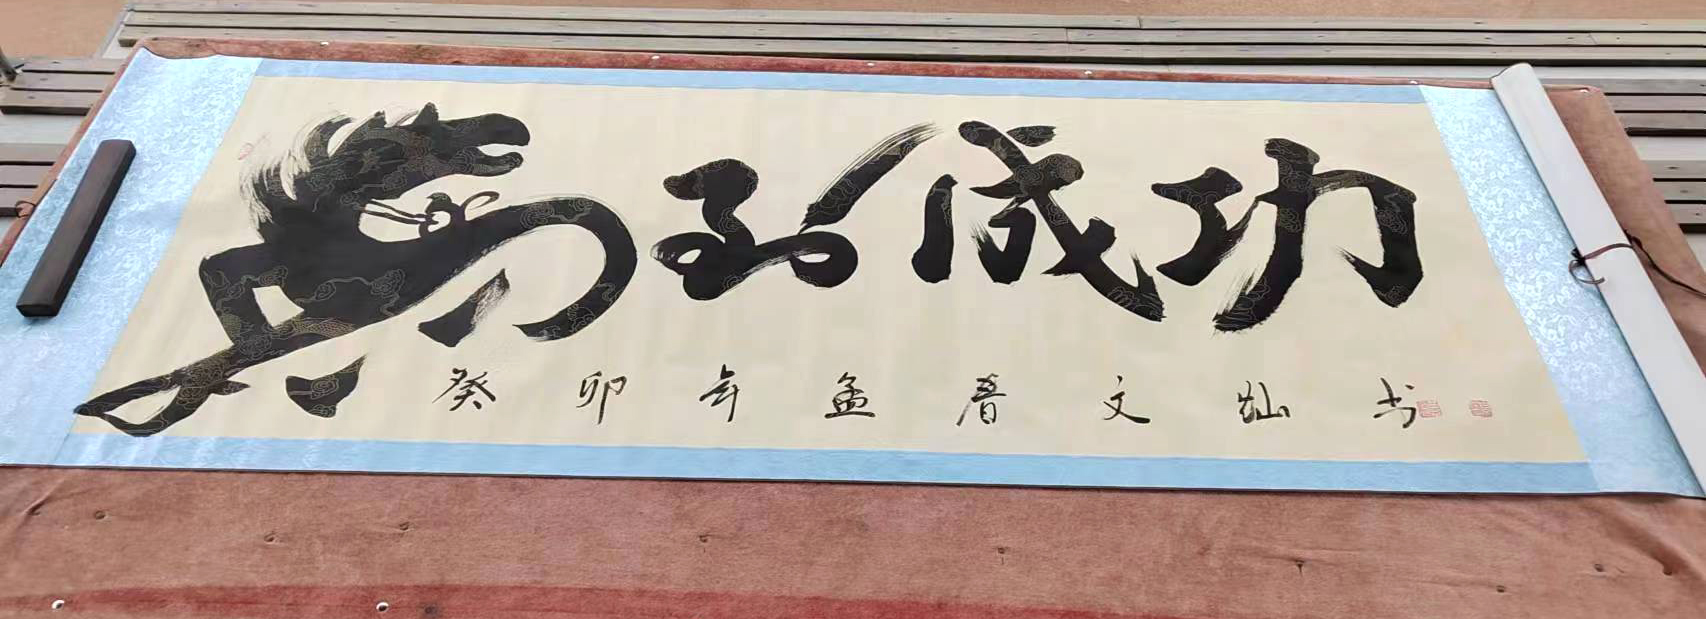 马到成功
癸卯年孟春文灿书